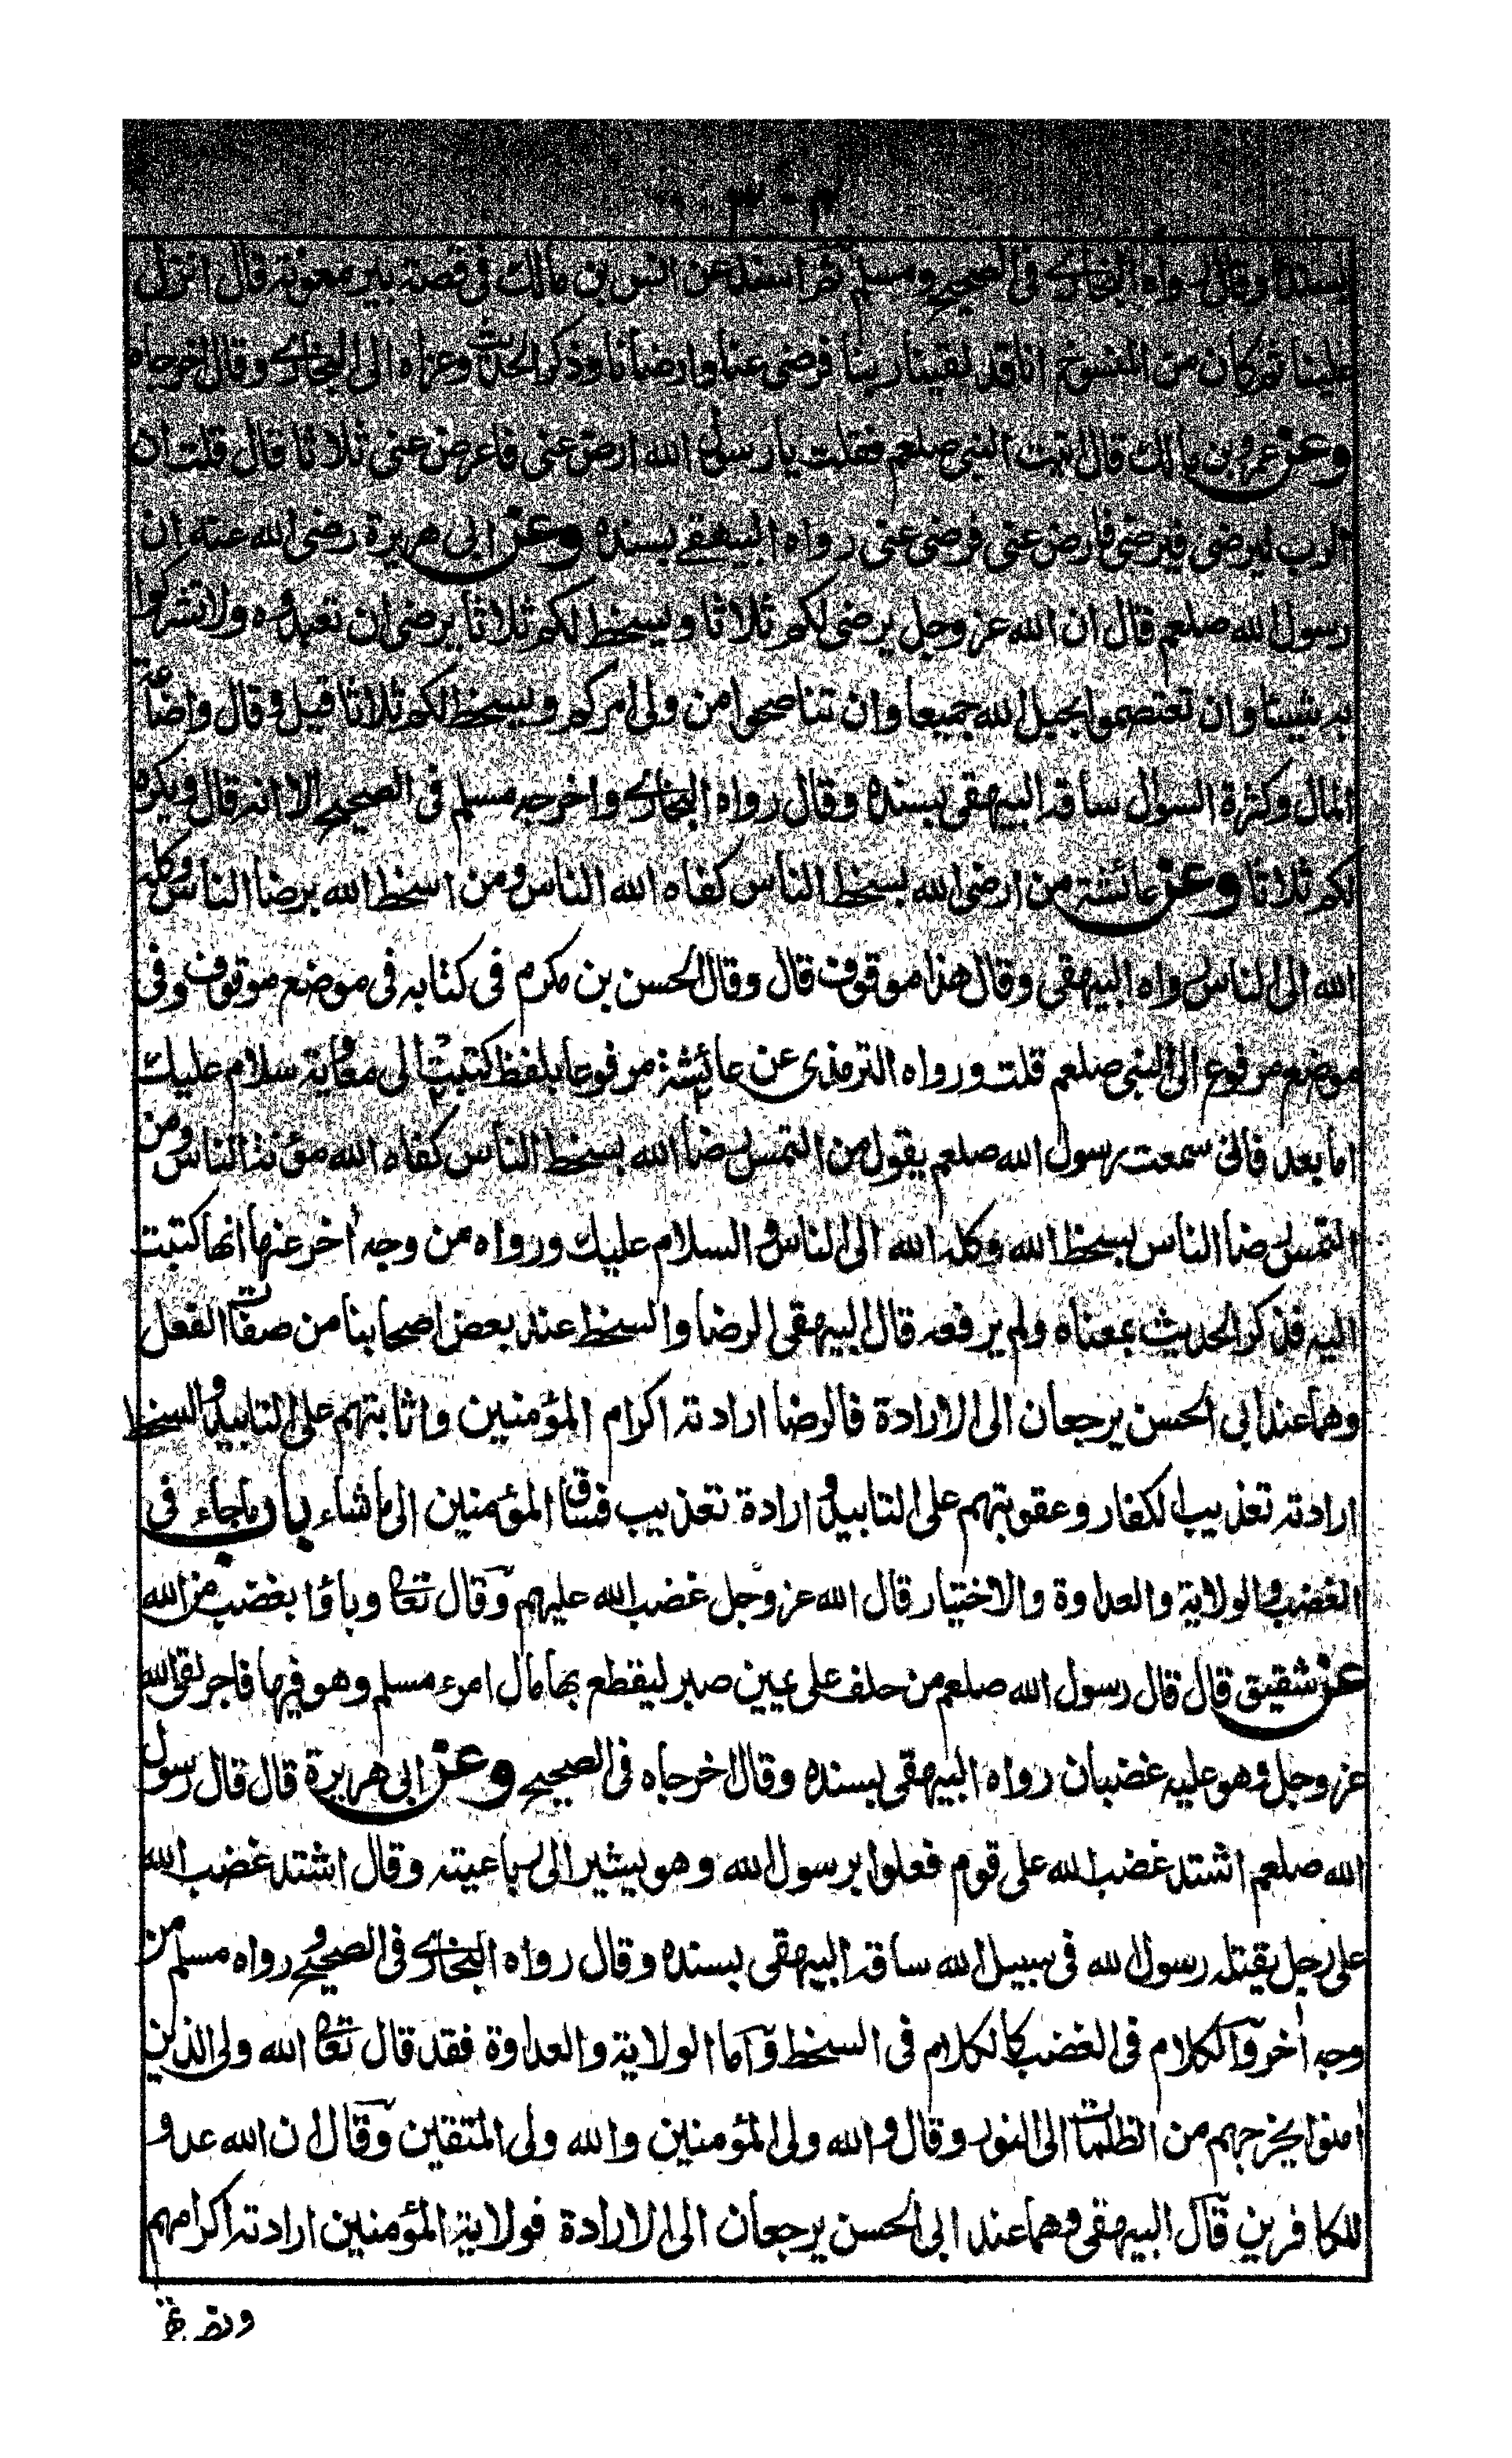 بسنده وقال رواه البخاري في الصحيح ومسلم ثم اسند عن انس بن مالك في قصة بير معونة قال انزل
علينا ثم كان من المنسوخ انا قد لقينا ربنا فرضي عنا وارضانا وذكر الحديث وعزاه الى البخاري وقال اخرجاه
وعن عمرو بن مالك قال اتيت النبي صلعم فقلت يا رسول الله ارض عني فاعرض عني ثلاثا قال قلت ان
الرب ليرضى فيرضى فارض عني فرضي عني رواه البيهقي بسنده وعن ابي هريرة رضي الله عنه ان
رسول الله صلعم قال ان الله عز وجل يرضى لكم ثلاثا ويسخط لكم ثلاثا يرضى ان تعبدوه ولا تشركوا
به شيئا وان تعتصموا بحبل الله جميعا وان تناصحوا من ولي امركم ويسخط لكم ثلاثا قيل وقال واضاعة
المال وكثرة السوال ساقه البيهقي بسنده وقال رواه البخاري واخرجه مسلم في الصحيح الا انه قال ويكره
لكم ثلاثا وعن عائشة من ارضى الله بسخط الناس كفاه الله الناس ومن اسخط الله برضا الناس وكله
الله الى الناس رواه البيهقي وقال هذا موقوف قال وقال الحسن بن مكرم في كتابه في موضع موقوف وفي
موضع مرفوع الى النبي صلعم قلت ورواه الترمذي عن عائشة مرفوعا بلفظ كتبت الى معاوية سلام عليك
اما بعد فاني سمعت رسول الله صلعم يقول من التمس رضا الله بسخط الناس كفاه الله مؤنة الناس ومن
التمس رضا الناس بسخط الله وكله الله الى الناس والسلام عليك ورواه من وجه اخر عنها انها كتبت
اليه فذكر الحديث بمعناه ولم يرفعه قال البيهقي الرضا والسخط عند بعض اصحابنا من صفات الفعل
وهما عند ابي الحسن يرجعان الى الارادة فالرضا ارادته اكرام المؤمنين واثابتهم على التابيد والسخط
ارادته تعذيب الكفار وعقوبتهم على التابيد وارادة تعذيب فساق المؤمنين الى ما شاء باب ما جاء في
الغضب والولاية والعداوة والاختيار قال الله عز وجل غضب الله عليهم وقال تعا وباؤا بغضب من الله
عن شقيق قال قال رسول الله صلعم من حلف على يمين صبر ليقطع بها مال امرء مسلم وهو فيها فاجر لقي الله
عز وجل وهو عليه غضبان رواه البيهقي بسنده وقال اخرجاه في الصحيح وعن ابي هريرة قال قال رسول
الله صلعم اشتد غضب الله على قوم فعلوا برسول الله وهو يشير الى رباعيته وقال اشتد غضب الله
على رجل يقتله رسول الله في سبيل الله ساقه البيهقي بسنده وقال رواه البخاري في الصحيح ورواه مسلم من
وجه اخر والكلام في الغضب كالكلام في السخط واما الولاية والعداوة فقد قال تعا الله ولي الذين
امنوا يخرجهم من الظلمات الى النور وقال والله ولي المؤمنين والله ولي المتقين وقال ان الله عدو
للكافرين قال البيهقي وهما عند ابي الحسن يرجعان الى الارادة فولاية المؤمنين ارادته اكرامهم